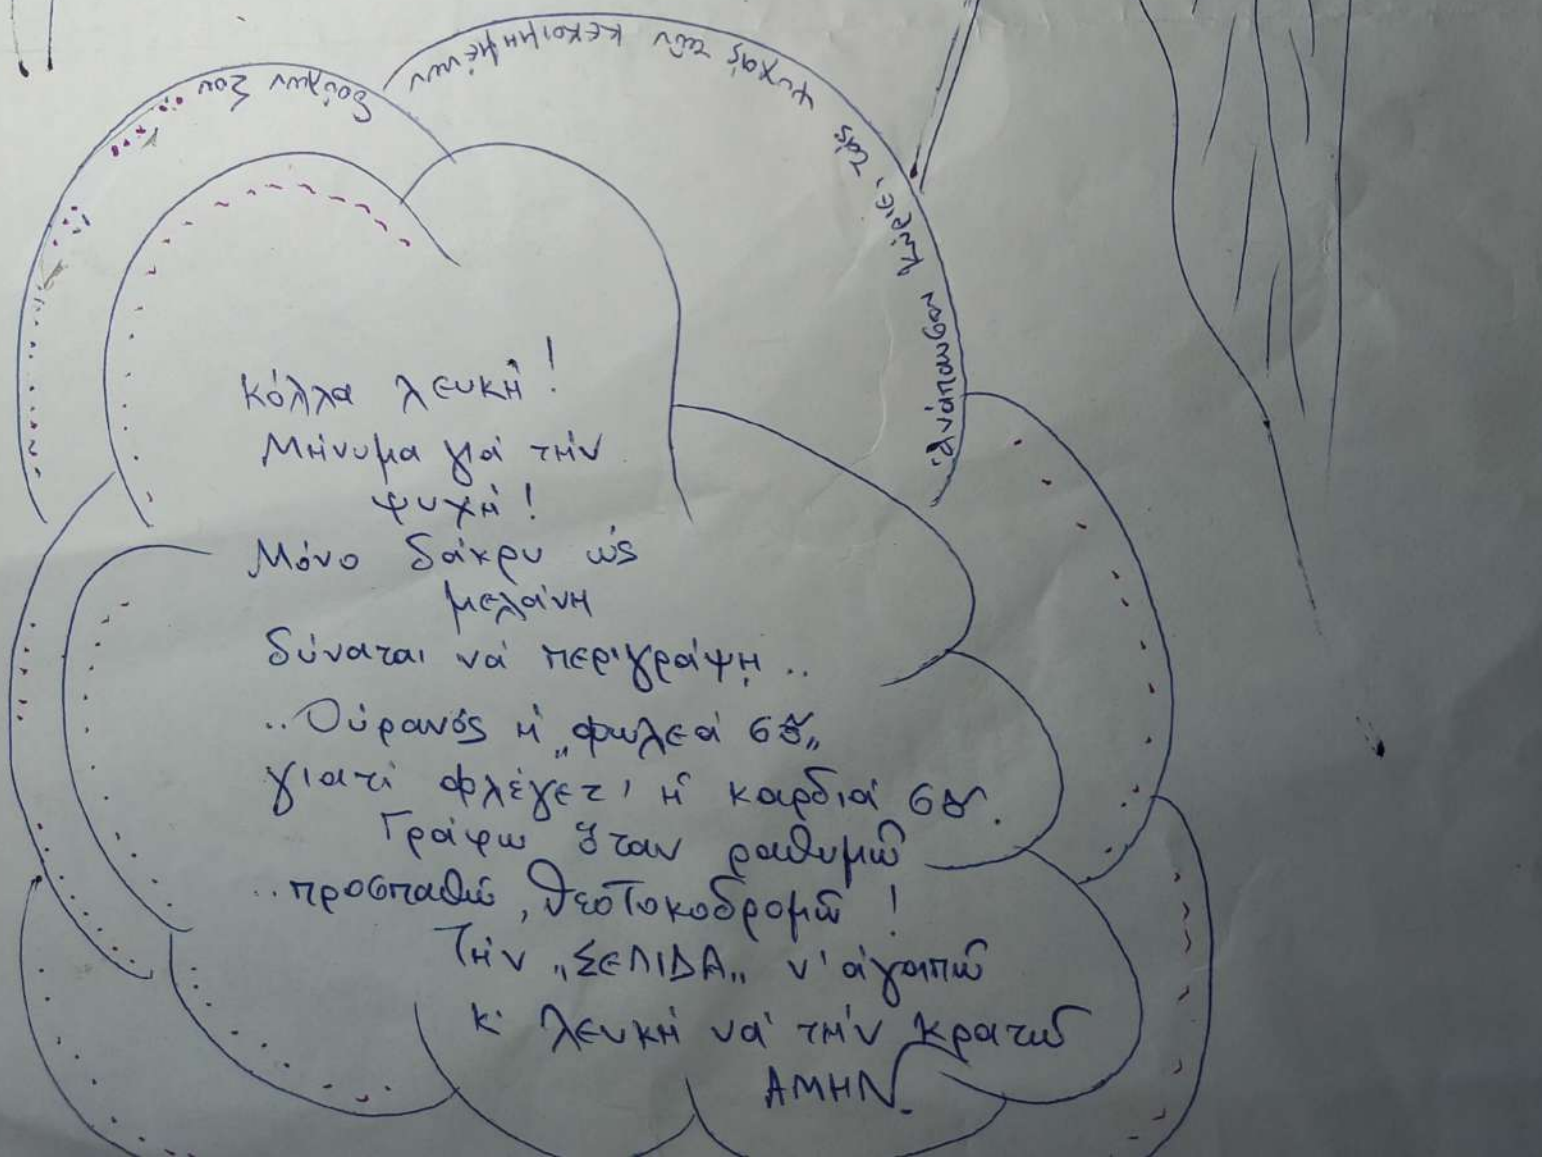 Ἀνάπαυσον Κύριε, τάς ψυχάς τῶν κεκοιμημένων
δούλων Σου
Κόλλα λευκή!
Μήνυμα γιά τήν
ψυχή!
Μόνο δάκρυ ὡς
μελάνη
δύναται νά περιγράψῃ..
..Οὐρανός ἡ „φωλεά σȣ„
γιατί φλέγετ' ἡ καρδιά σȣ.
Γράφω ὅταν ραθυμῶ
..προσπαθῶ, θεοτοκοδρομῶ!
Τήν „ΣΕΛΙΔΑ„ ν' ἀγαπῶ
κ' λευκή νά τήν κρατῶ
ΑΜΗΝ.